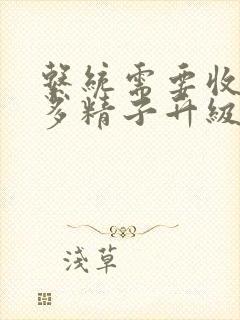 繫統需要收
多精子升級
淺草